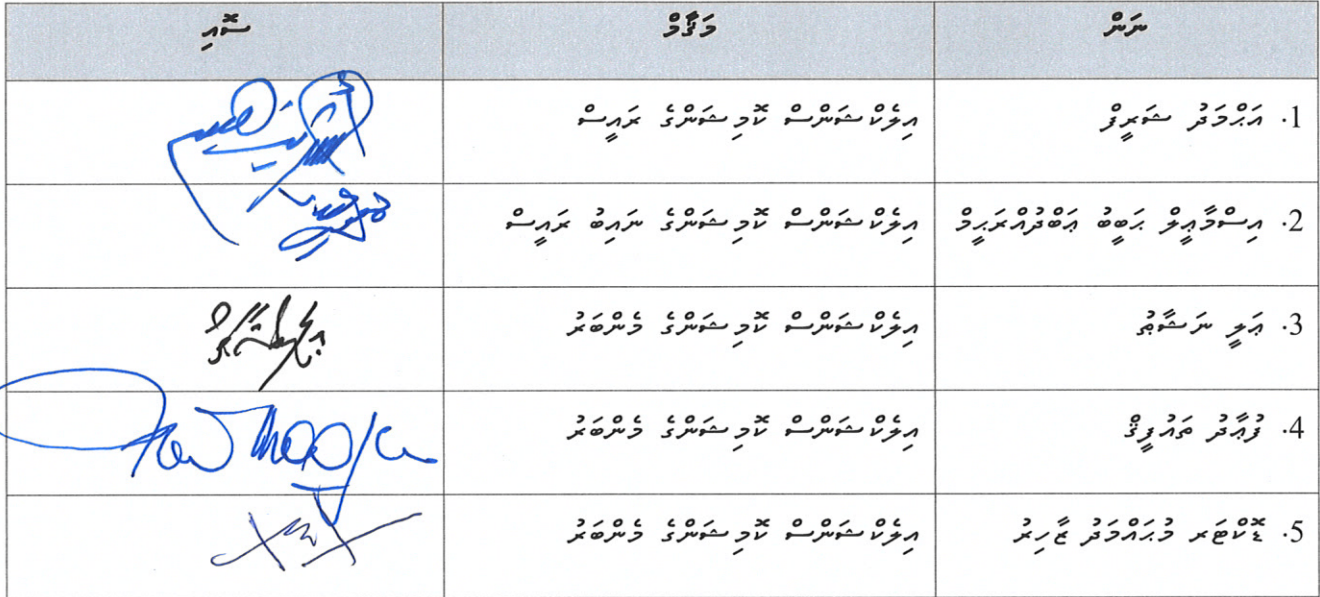 ނަން މަޤާމް ސޮއި
1. އަޙްމަދު ޝަރީފް އިލެކްޝަންސް ކޮމިޝަންގެ ރައީސް
2. އިސްމާޢީލް ޙަބީބު ޢަބްދުއްރަޙީމް އިލެކްޝަންސް ކޮމިޝަންގެ ނައިބު ރައީސް
3. ޢަލީ ނަޝާޠު އިލެކްޝަންސް ކޮމިޝަންގެ މެންބަރު
4. ފުޢާދު ތައުފީޤް އިލެކްޝަންސް ކޮމިޝަންގެ މެންބަރު
5. ޑޮކްޓަރ މުޙައްމަދު ޒާހިރު އިލެކްޝަންސް ކޮމިޝަންގެ މެންބަރު